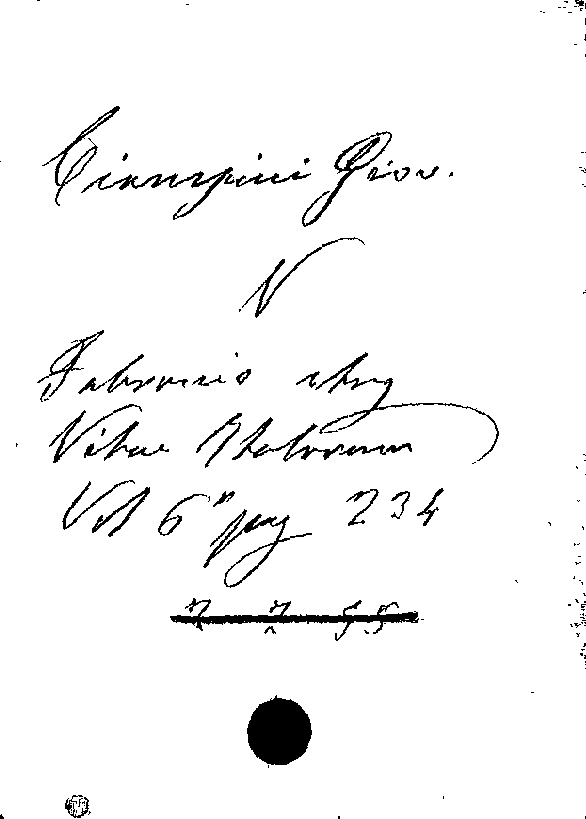 Ciampini Giov.
N
Fabronio
Vitae Italorum
Vol 6° pag 234
7 7 55